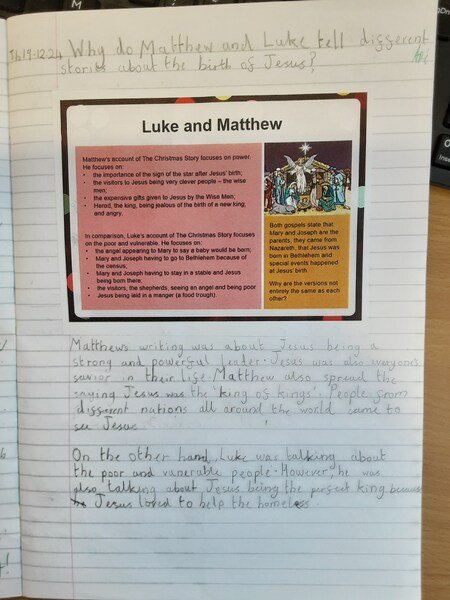 Th 19.12.24 Why do Matthew and Luke tell different
stories about the birth of Jesus?
Luke and Matthew
Matthew's account of The Christmas Story focuses on power.
He focuses on:
• the importance of the sign of the star after Jesus' birth;
• the visitors to Jesus being very clever people – the wise
men;
• the expensive gifts given to Jesus by the Wise Men;
• Herod, the king, being jealous of the birth of a new king,
and angry.
In comparison, Luke's account of The Christmas Story focuses
on the poor and vulnerable. He focuses on:
• the angel appearing to Mary to say a baby would be born;
• Mary and Joseph having to go to Bethlehem because of
the census;
• Mary and Joseph having to stay in a stable and Jesus
being born there;
• the visitors, the shepherds, seeing an angel and being poor
• Jesus being laid in a manger (a food trough).
Both gospels state that
Mary and Joseph are the
parents, they came from
Nazareth, that Jesus was
born in Bethlehem and
special events happened
at Jesus' birth.
Why are the versions not
entirely the same as each
other?
Matthews writing was about Jesus being a
strong and powerful leader. Jesus was also everyone's
savior in their life. Matthew also spread the
saying Jesus was the 'king of kings'. People from
different nations all around the world came to
see Jesus.
On the other hand, Luke was talking about
the poor and vunerable people. However, he was
also talking about Jesus being the perfect king because
Jesus loved to help the homeless.